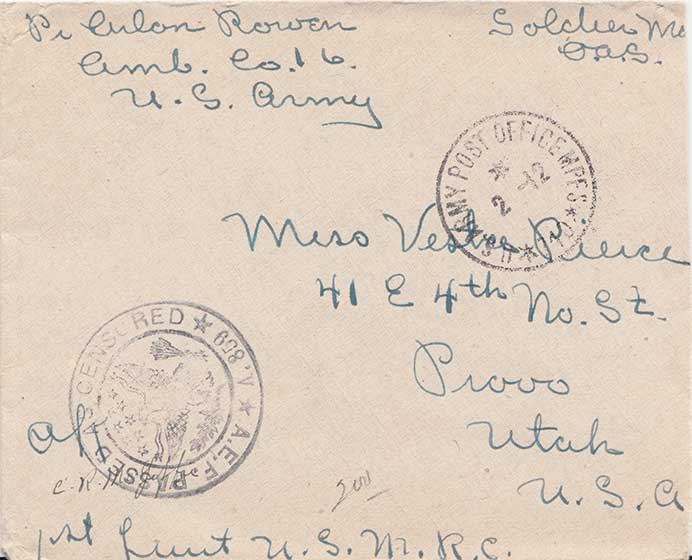 Culon Rowen
Soldier's
Amb. Co. 16.
O.A.S.
U. S. Army
ARMY POST OFFICE M.P.E.S. ★ U.S.
★
2 12
Miss Pierce
41 E 4th No. St.
Provo
Utah
U. S. A
A.E.F. PASSED AS CENSORED ★ A. 859 ★
1st Lieut U. S. M. R. C.